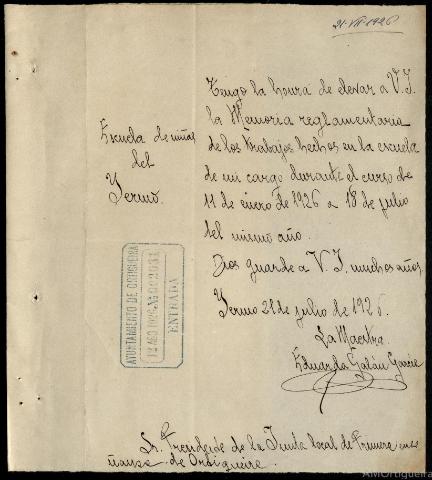 21-VII-1926
Tengo la honra de elevar a V.I.
la Memoria reglamentaria
de los trabajos hechos en la escuela
de mi cargo durante el curso de
11 de enero de 1926 a 18 de julio
del mismo año.
Dios guarde a V.I. muchos años.
Yermo 21 de julio de 1926.
La Maestra.
Eduarda Galán
Escuela de niñas
del
Yermo.
AYUNTAMIENTO DE ORTIGUEIRA
12 AGO 1926
ENTRADA
Sr. Presidente de la Junta local de Primera ense
ñanza de Ortigueira.
AMOrtigueira